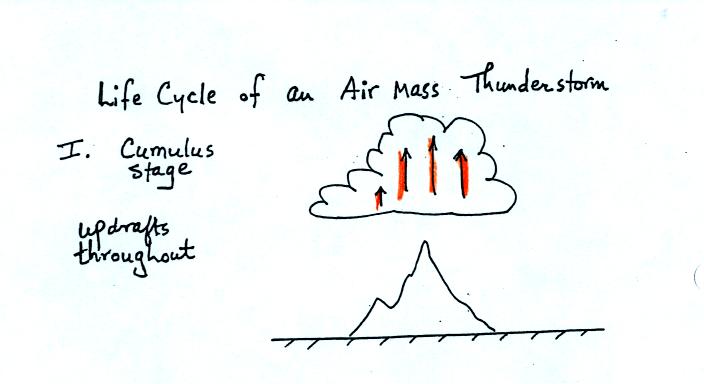 Life Cycle of an Air Mass Thunderstorm
I. Cumulus
stage
updrafts
throughout